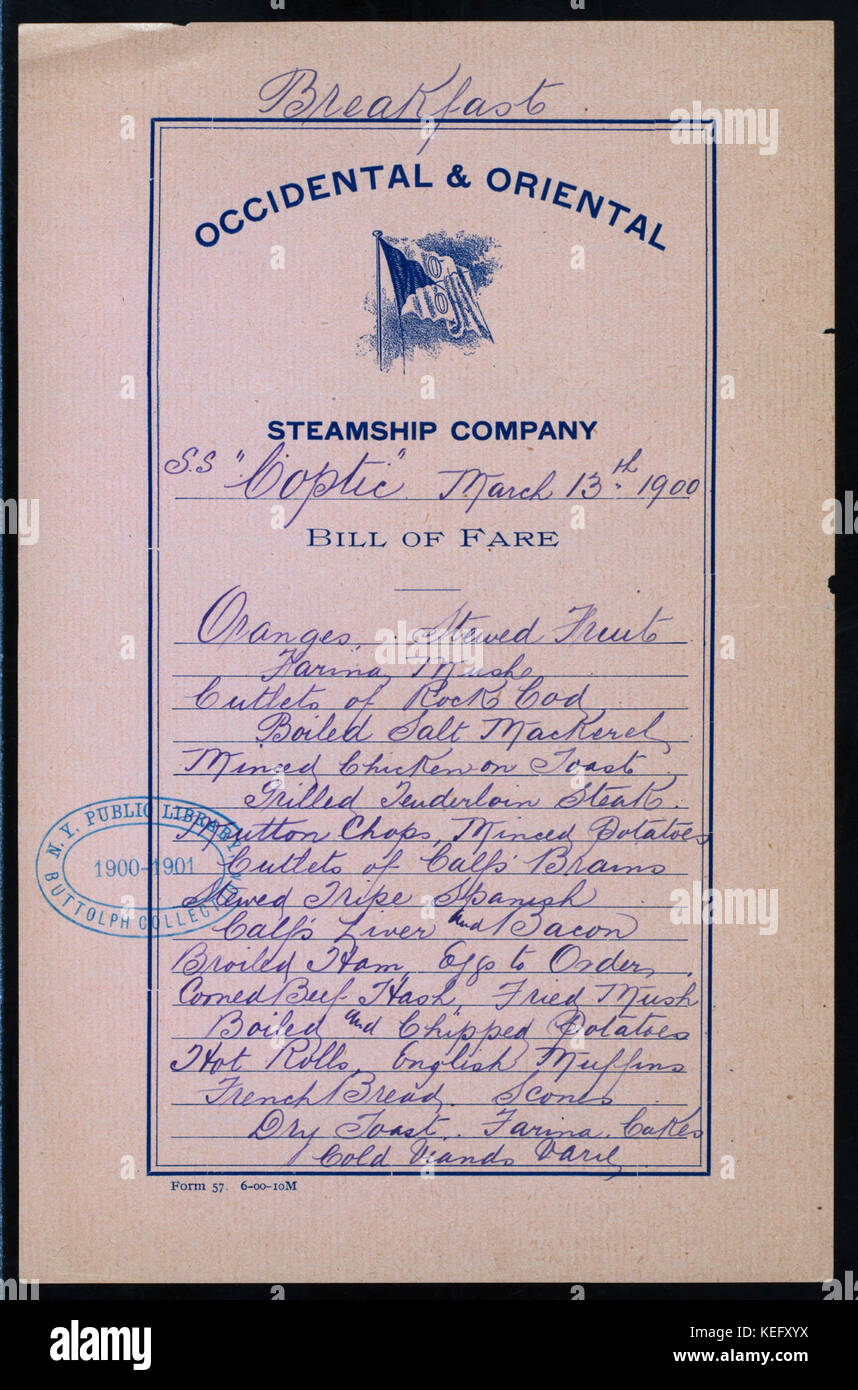 Breakfast
OCCIDENTAL & ORIENTAL
STEAMSHIP COMPANY
S.S "Coptic" March 13th 1900
BILL OF FARE
Oranges, Stewed Fruit
Farina Mush
Cutlets of Rock Cod
Boiled Salt Mackerel
Minced Chicken on Toast
Grilled Tenderloin Steak.
Mutton Chops, Minced Potatoes
Cutlets of Calf's Brains
Stewed Tripe Spanish
Calf's Liver and Bacon
Broiled Ham, Eggs to Order,
Corned Beef Hash, Fried Mush
Boiled and Chipped Potatoes
Hot Rolls, English Muffins
French Bread. Scones
Dry Toast. Farina Cakes
Cold Viands
Form 57. 6-00-10M
N. Y. PUBLIC LIBRARY
1900-1901
BUTTOLPH COLLECTION
alamy
a
alamy stock photo
KEFXYX
www.alamy.com